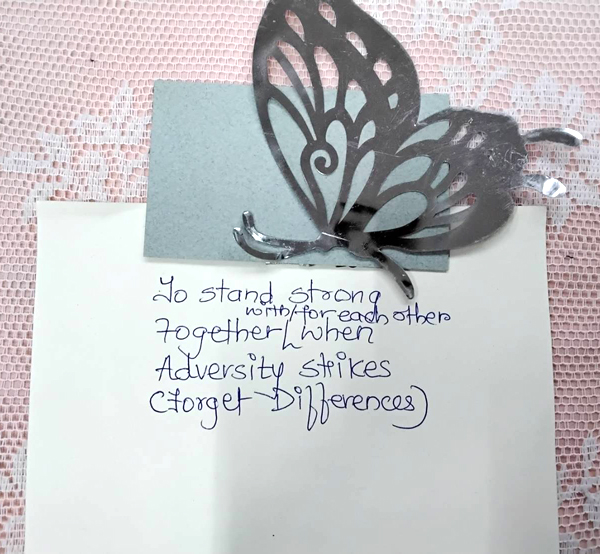 To stand strong
with/for each other
Together when
Adversity strikes
(Forget Differences)